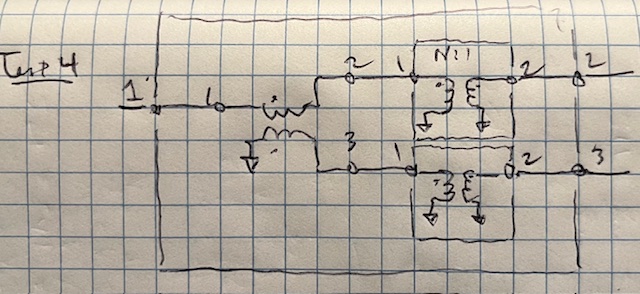 Test 4
N:1
1 1 2 1 2 2
3 1 2 3